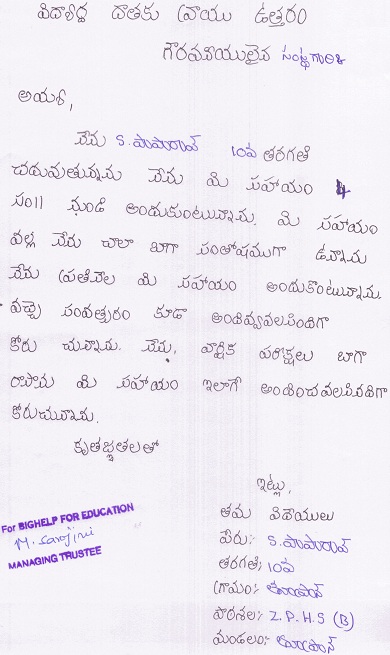 విద్యార్థి దాతకు వ్రాయు ఉత్తరం
గౌరవనీయులైన
అయ్యా,
నేను S. పాపారావ్ 10వ తరగతి
చదువుతున్నాను నేను మి సహాయం 4
సం౹౹ నుండి అందుకుంటున్నాను. మి సహాయం
వల్ల నేను చాలా బాగా సంతోషముగా ఉన్నాను
నేను ప్రతినెల మి సహాయం అందుకొంటున్నాను
వచ్చే సంవత్సరం కూడా అందివ్వవలసిందిగా
కోరు చున్నాను. నేను, వార్షిక పరీక్షలు బాగా
రాసాను మి సహాయం ఇలాగే అందించవలసినదిగా
కోరుచున్నాను.
కృతజ్ఞతలతో
ఇట్లు,
తమ విదేయులు
పేరు:- S. పాపారావ్
తరగతి; 10వ
గ్రామం:-
పాఠశాల: Z.P.H.S (B)
మండలం:
For BIGHELP FOR EDUCATION
M. Sarojini
MANAGING TRUSTEE